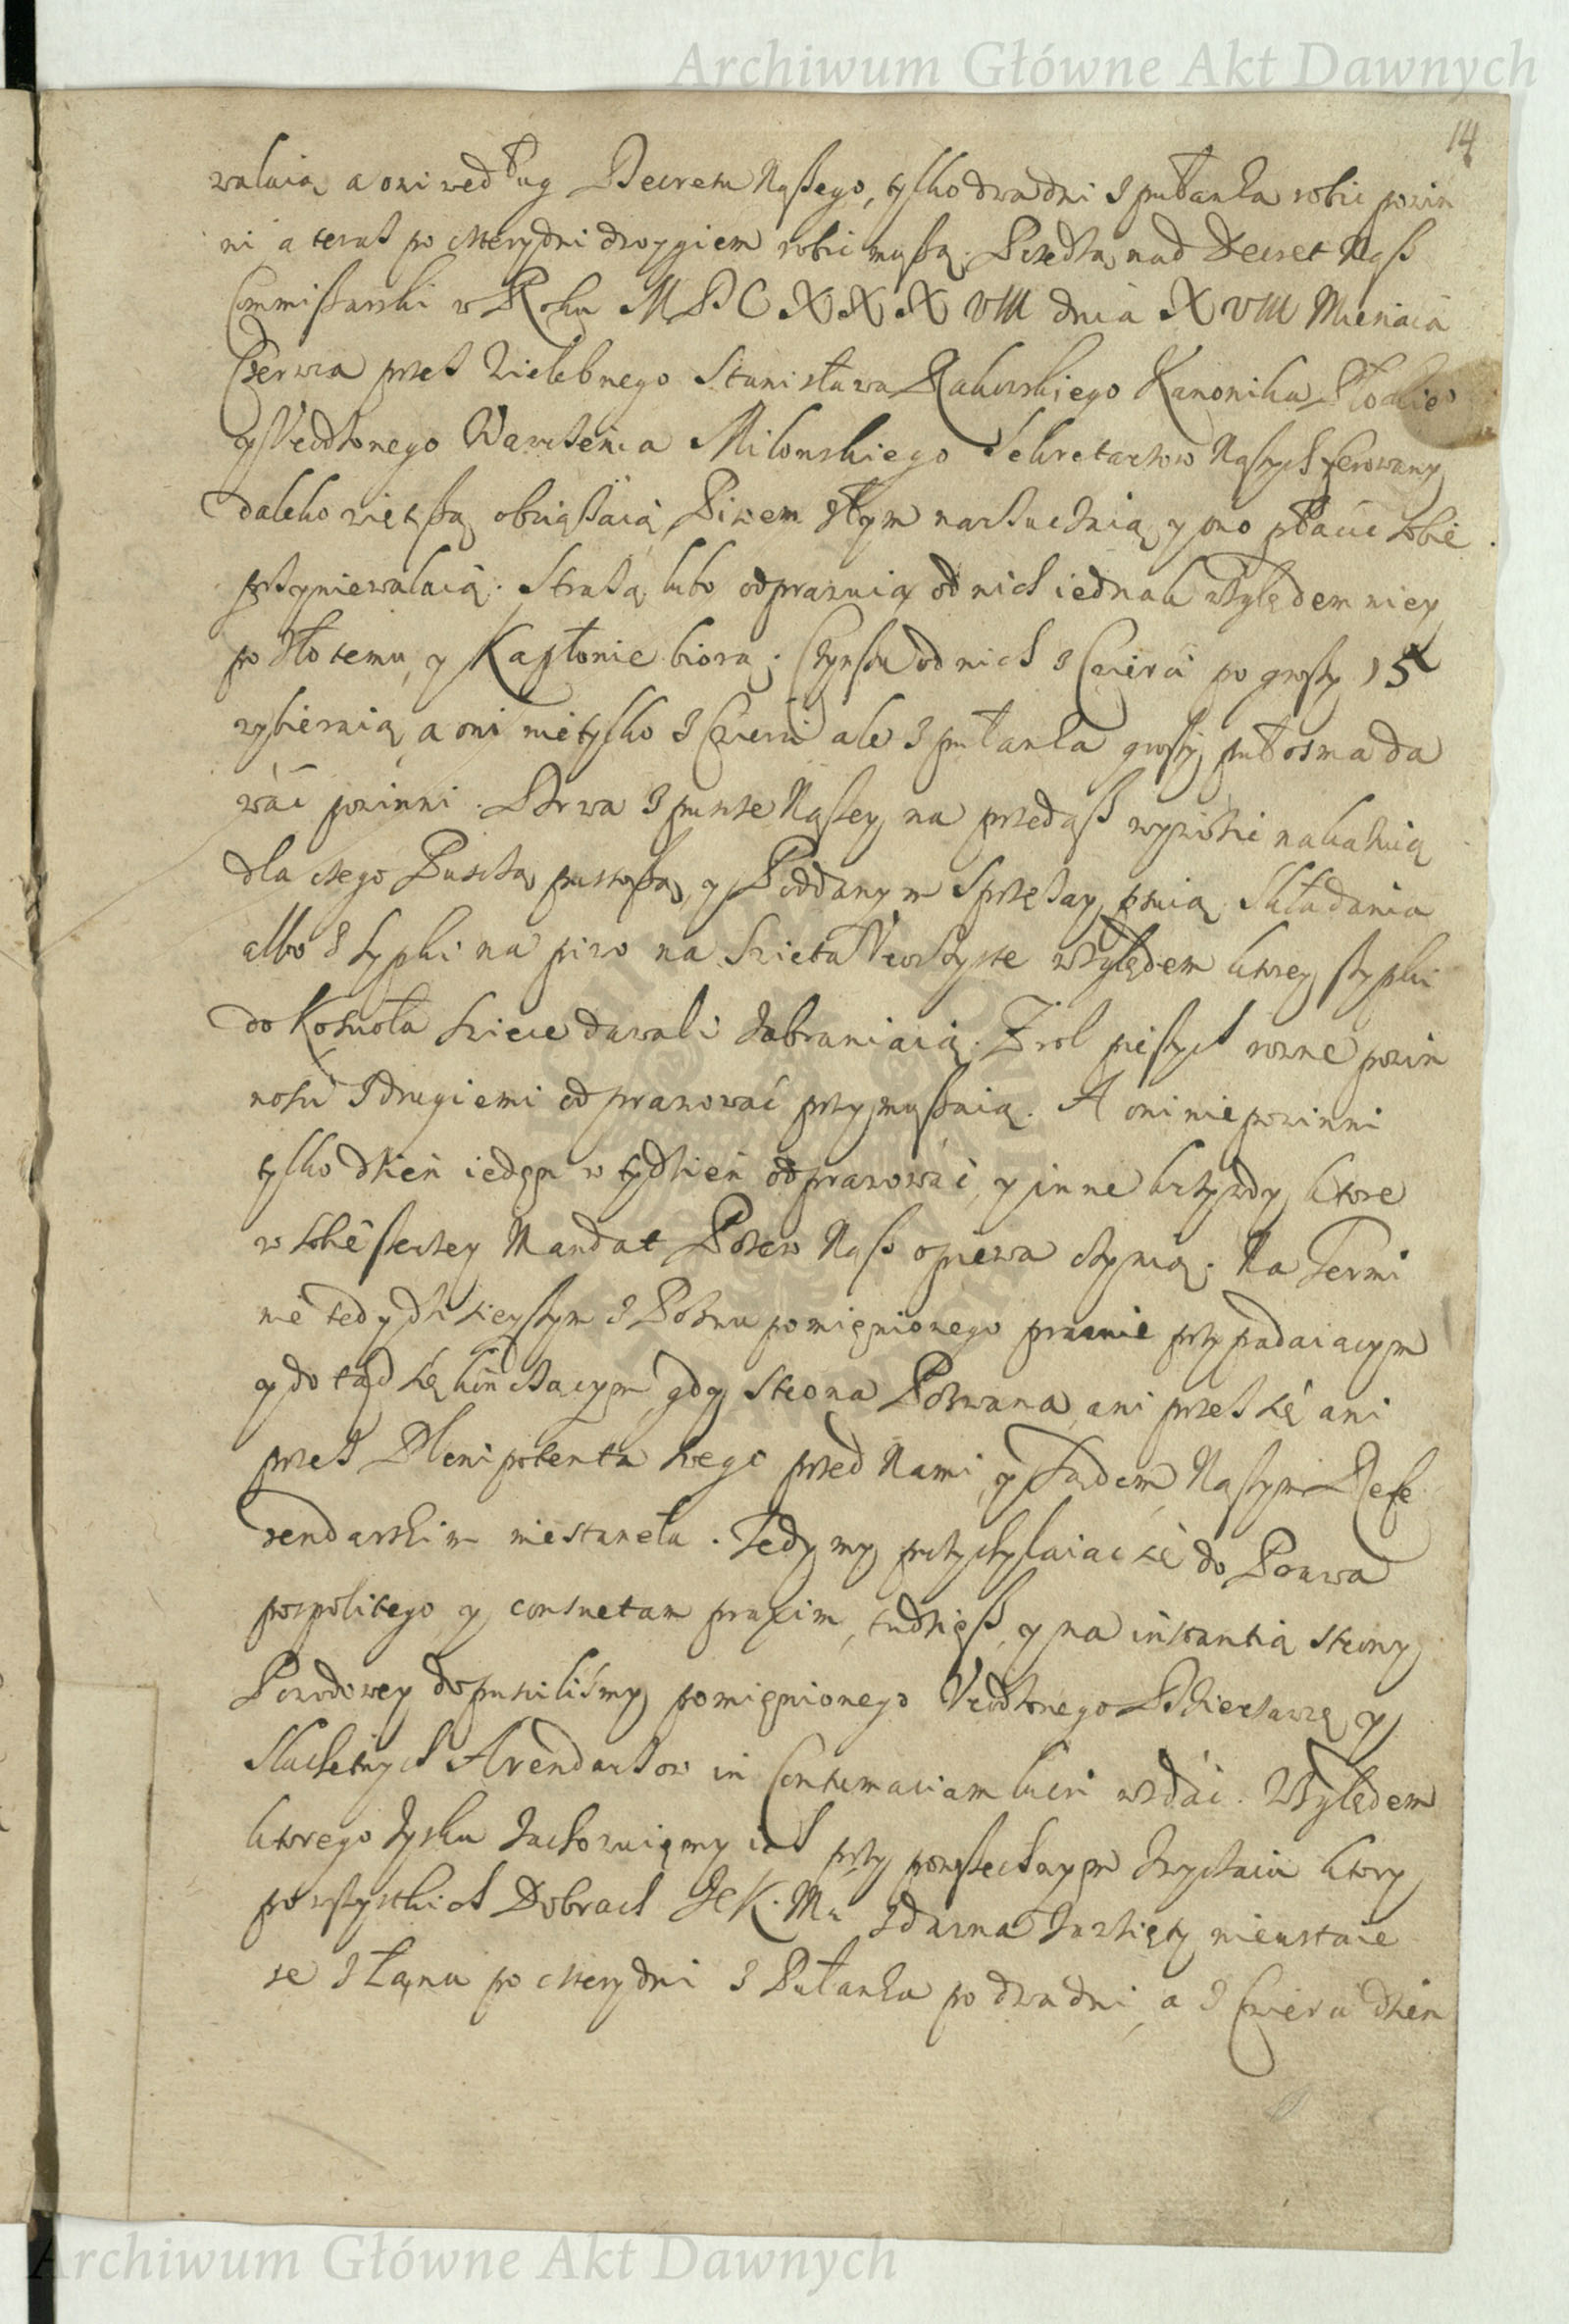 Archiwum Główne Akt Dawnych
14
walaią a oni według Decretu Naszego, tylko dwa dni z pułanka robic powin
ni, a teraz po cztery dni dropgiem robic muszą. Przedtą nad Decret Nasz
Commissarski w Roku MDCXXXVIII dnia XVIII Miesiąca
Czerwca przez Wielebnego Stanisława Kanonika Płockieo
y Urodzonego Wawrzenca Milonskiego Sekretarzow Naszych ferowany
daleko więtszą obciąszaią, Piwem złym narzucznią, y ono płacic sobie
przyniewalaią. Strażą lubo odprawuią od nich iednak względem niey
po złotemu, y Kapłonie biorą. Czynszu od nich z Cwierci po groszy 15
wybieraią, a oni nie tylko z Cwierci ale z pułanka groszy pułosma da
wać powinni. Drwa z puszcze Naszey na przedasz wywozic nakazuią
dla czego Puszczą pustoszą, y Poddanym Sprzężay psuią. Składania
albo z sypki na piwo na Swięta Uroczyste względem ktorey sypki
do Koscioła Swiece dawali zabraniaią. Z rol pieszych rowne powin
nosci z drugiemi odprawować przymuszaią. A oni nie powinni
tylko dzień ieden w tydzień odprawować, y inne krzywdy ktore
w sobie szerzey Mandat Pozew Nasz opiewa czynią. Na Termi
nie tedy dzisieyszym z Pozwu pomienionego prawnie przypadaiacym
y do tąd się kończącym, gdy Strona Pozwana, ani przez się ani
przez Plenipotenta swego przed Nami, y Sądem Naszym Refe
rendarskim niestaneła. Tedy my przychylaiac się do Prawa
pospolitego y consuetam praxim, tudziesz y na instantią strony
Powodowey dopuscilismy pomienionego Urodzonego Dzierzawcę y
Slachetnych Arendarzow in Contumaciam lucri wzdać. Względem
ktorego zysku zachowuiemy ich przy powszechnym zwyczaiu ktory
po wszystkich Dobrach JeK. Mci zdawna zawzięty nieustaie
że z Łanu po cztery dni z Pułanka po dwa dni, a z Cwierci dzien
Archiwum Główne Akt Dawnych